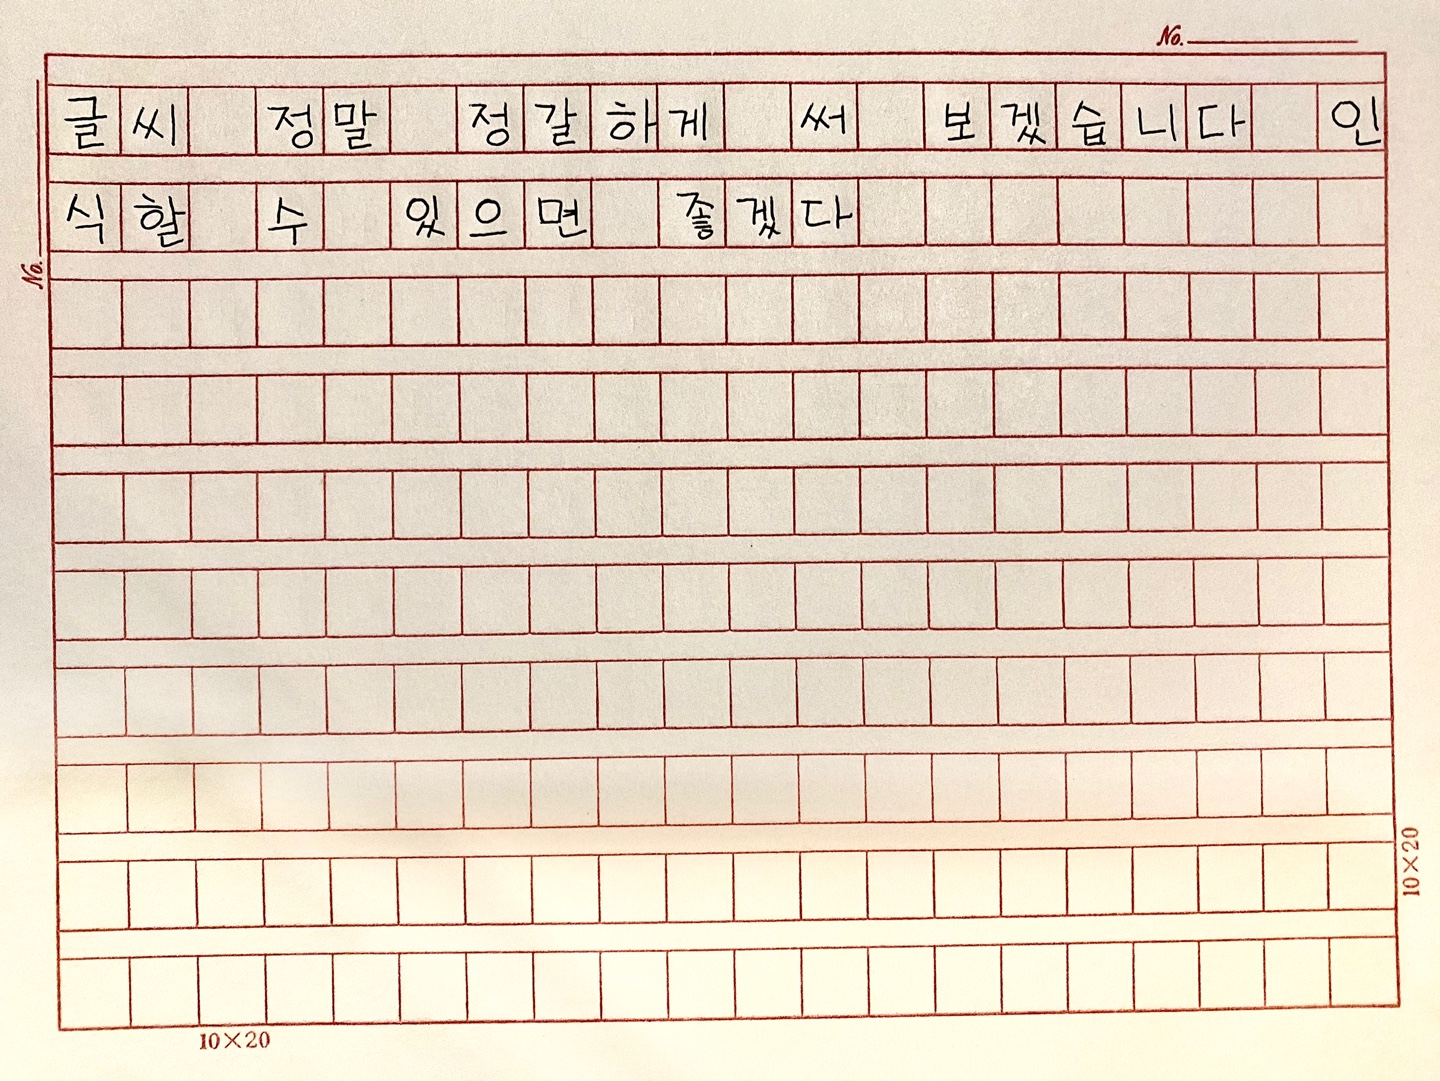 No.
글씨 정말 정갈하게 써 보겠습니다 인
식할 수 있으면 좋겠다
No.
10×20
10×20